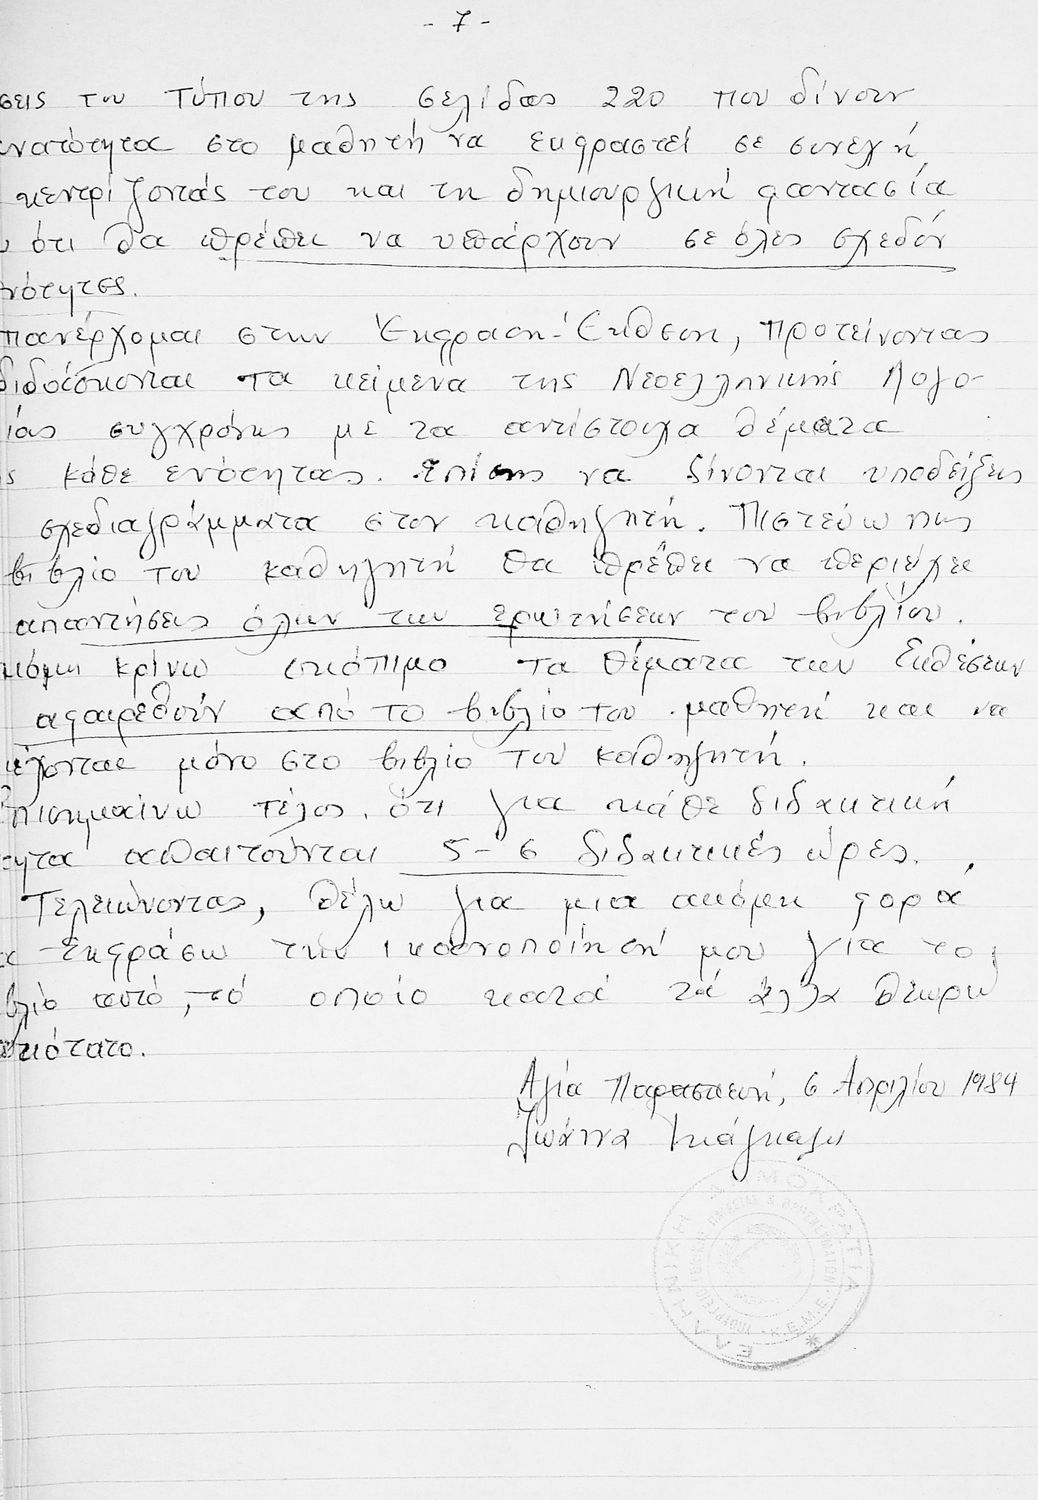 - 7 -
σεις του τύπου της σελίδας 220 που δίνουν
υνατότητα στο μαθητή να εκφραστεί σε συνεχή
κεντρίζοντάς του και τη δημιουργική φαντασία
ότι θα πρέπει να υπάρχουν σε όλες σχεδόν
νότητες.
πανέρχομαι στην Έκφραση-Έκθεση, προτείνοντας
διδάσκονται τα κείμενα της Νεοελληνικής Λογο-
ίας συγχρόνως με τα αντίστοιχα θέματα
ς κάθε ενότητας. Επίσης να δίνονται υποδείξεις
σχεδιαγράμματα στον καθηγητή. Πιστεύω πως
βιβλίο του καθηγητή θα πρέπει να περιέχει
απαντήσεις όλων των ερωτήσεων του βιβλίου.
κόμη κρίνω σκόπιμο τα θέματα των Εκθέσεων
αφαιρεθούν από το βιβλίο του μαθητή και να
έχονται μόνο στο βιβλίο του καθηγητή.
Επισημαίνω τέλος, ότι για κάθε διδακτική
τητα απαιτούνται 5-6 διδακτικές ώρες.
Τελειώνοντας, θέλω για μια ακόμη φορά
α εκφράσω την ικανοποίησή μου για το
βλίο αυτό, τό οποίο κατά τά άλλα θεωρώ
ιότατο.
Αγία Παρασκευή, 6 Απριλίου 1984
Ιωάννα
ΕΛΛΗΝΙΚΗ ΔΗΜΟΚΡΑΤΙΑ
ΥΠΟΥΡΓΕΙΟ ΕΘΝΙΚΗΣ ΠΑΙΔΕΙΑΣ & ΘΡΗΣΚΕΥΜΑΤΩΝ
Κ.Ε.Μ.Ε.